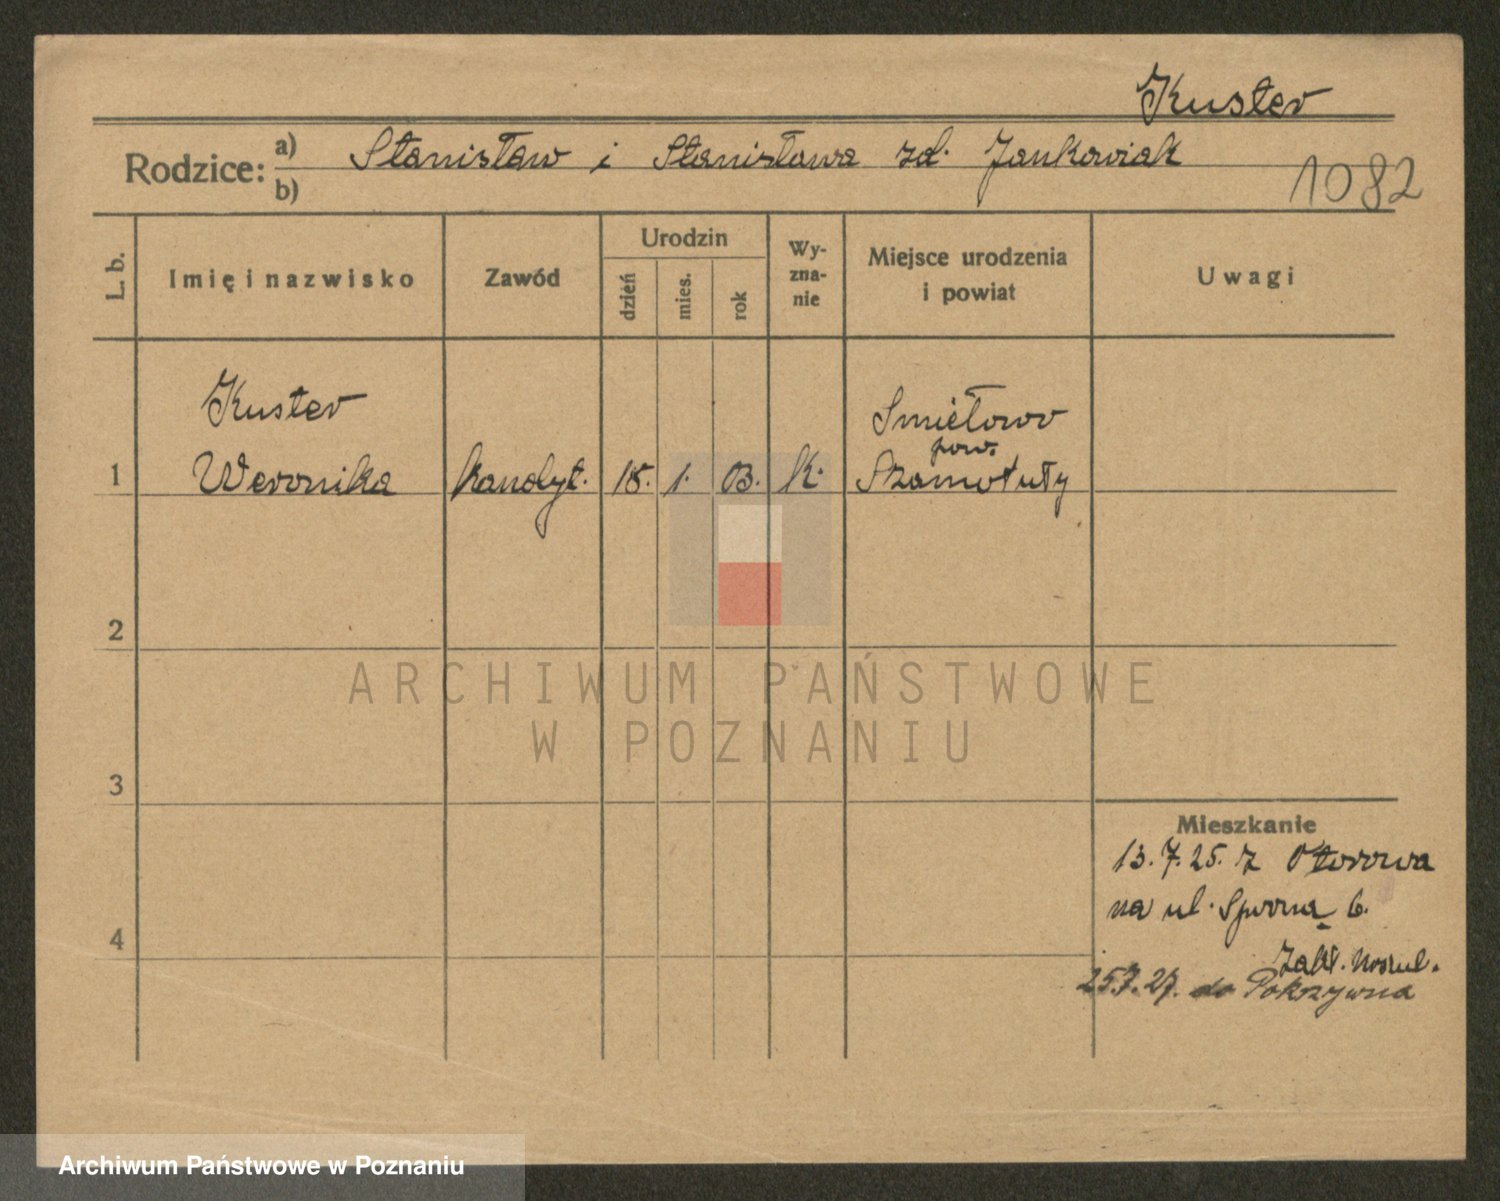 Kuster
Rodzice: a) Stanisław i Stanisława zd. Jankowiak
b)
1082
L. b.
Imię i nazwisko
Zawód
Urodzin
dzień
mies.
rok
Wy-
zna-
nie
Miejsce urodzenia
i powiat
Uwagi
Kuster
Smiełowo
pow.
1 Weronika kandyt. 18. 1. 03. K. Szamotuły
2
ARCHIWUM PAŃSTWOWE
W POZNANIU
3
Mieszkanie
13.7.25. z Otorowa
na ul. Sporna 6.
4
Zakł.
25.7.27. do Pokrzywna
Archiwum Państwowe w Poznaniu